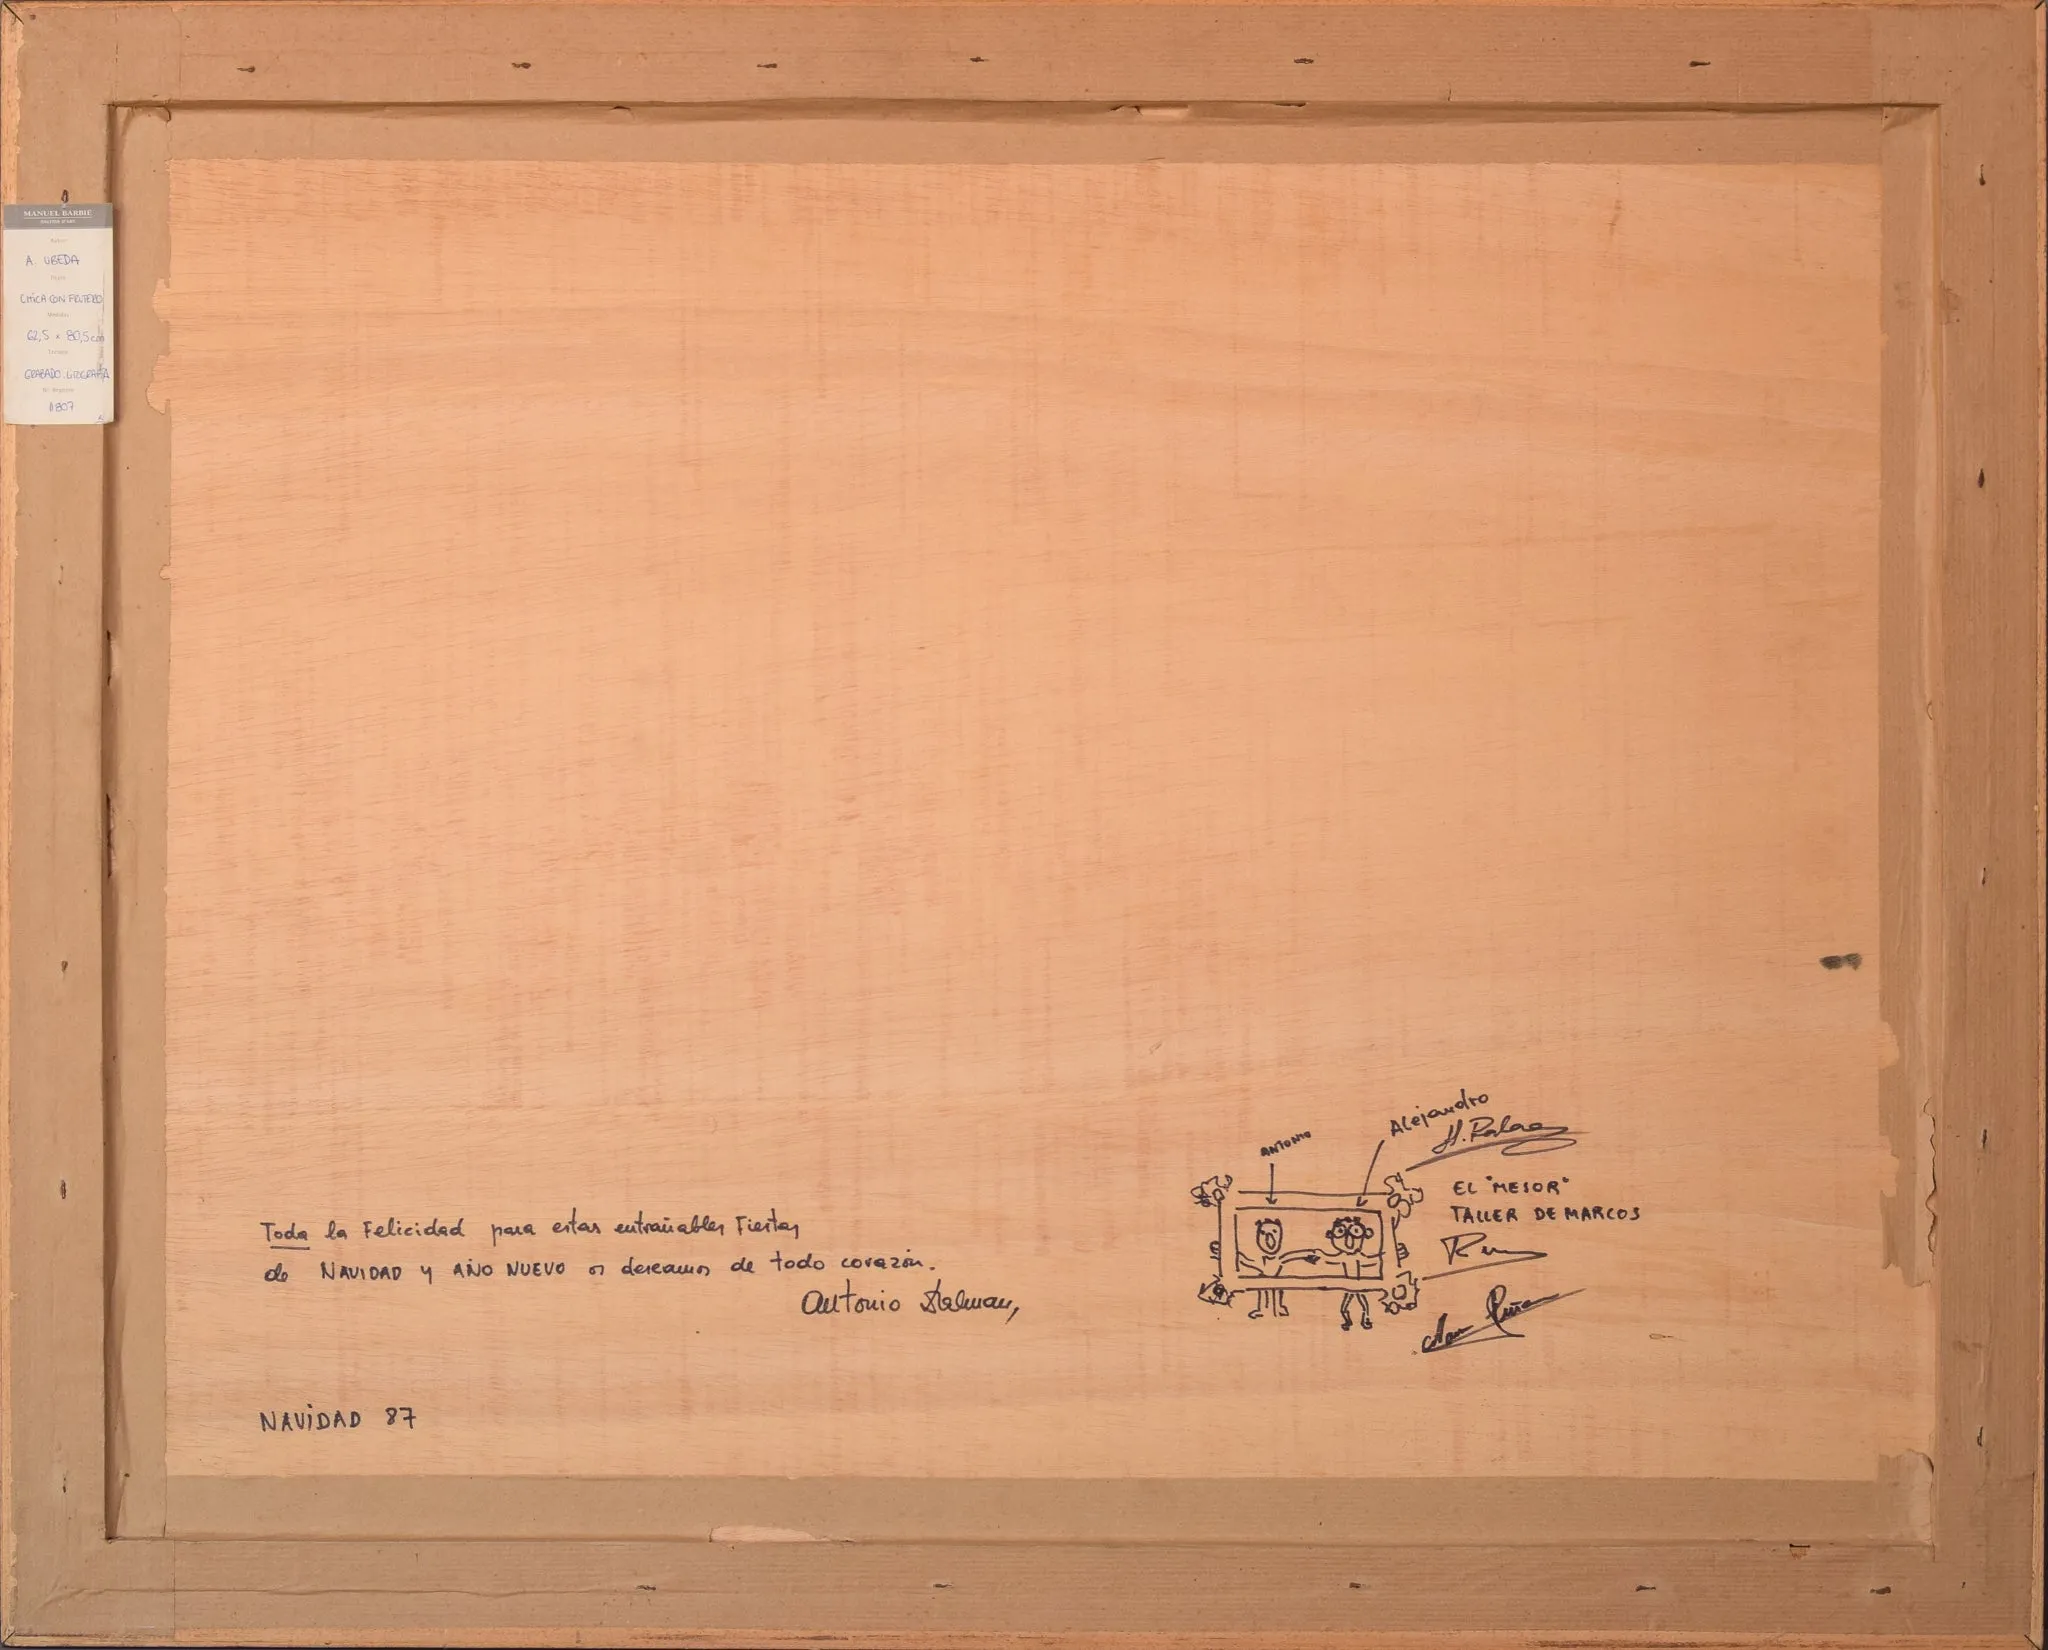 MANUEL BARBIÉ
A. UBEDA
CHICA CON FRUTERO
62,5 x 80,5 cm
GRABADO. LITOGRAFIA
1807
Toda la Felicidad para estas entrañables Fiestas
de NAVIDAD y AÑO NUEVO os deseamos de todo corazón.
Antonio
NAVIDAD 87
ANTONIO
Alejandro
EL "MEJOR"
TALLER DE MARCOS